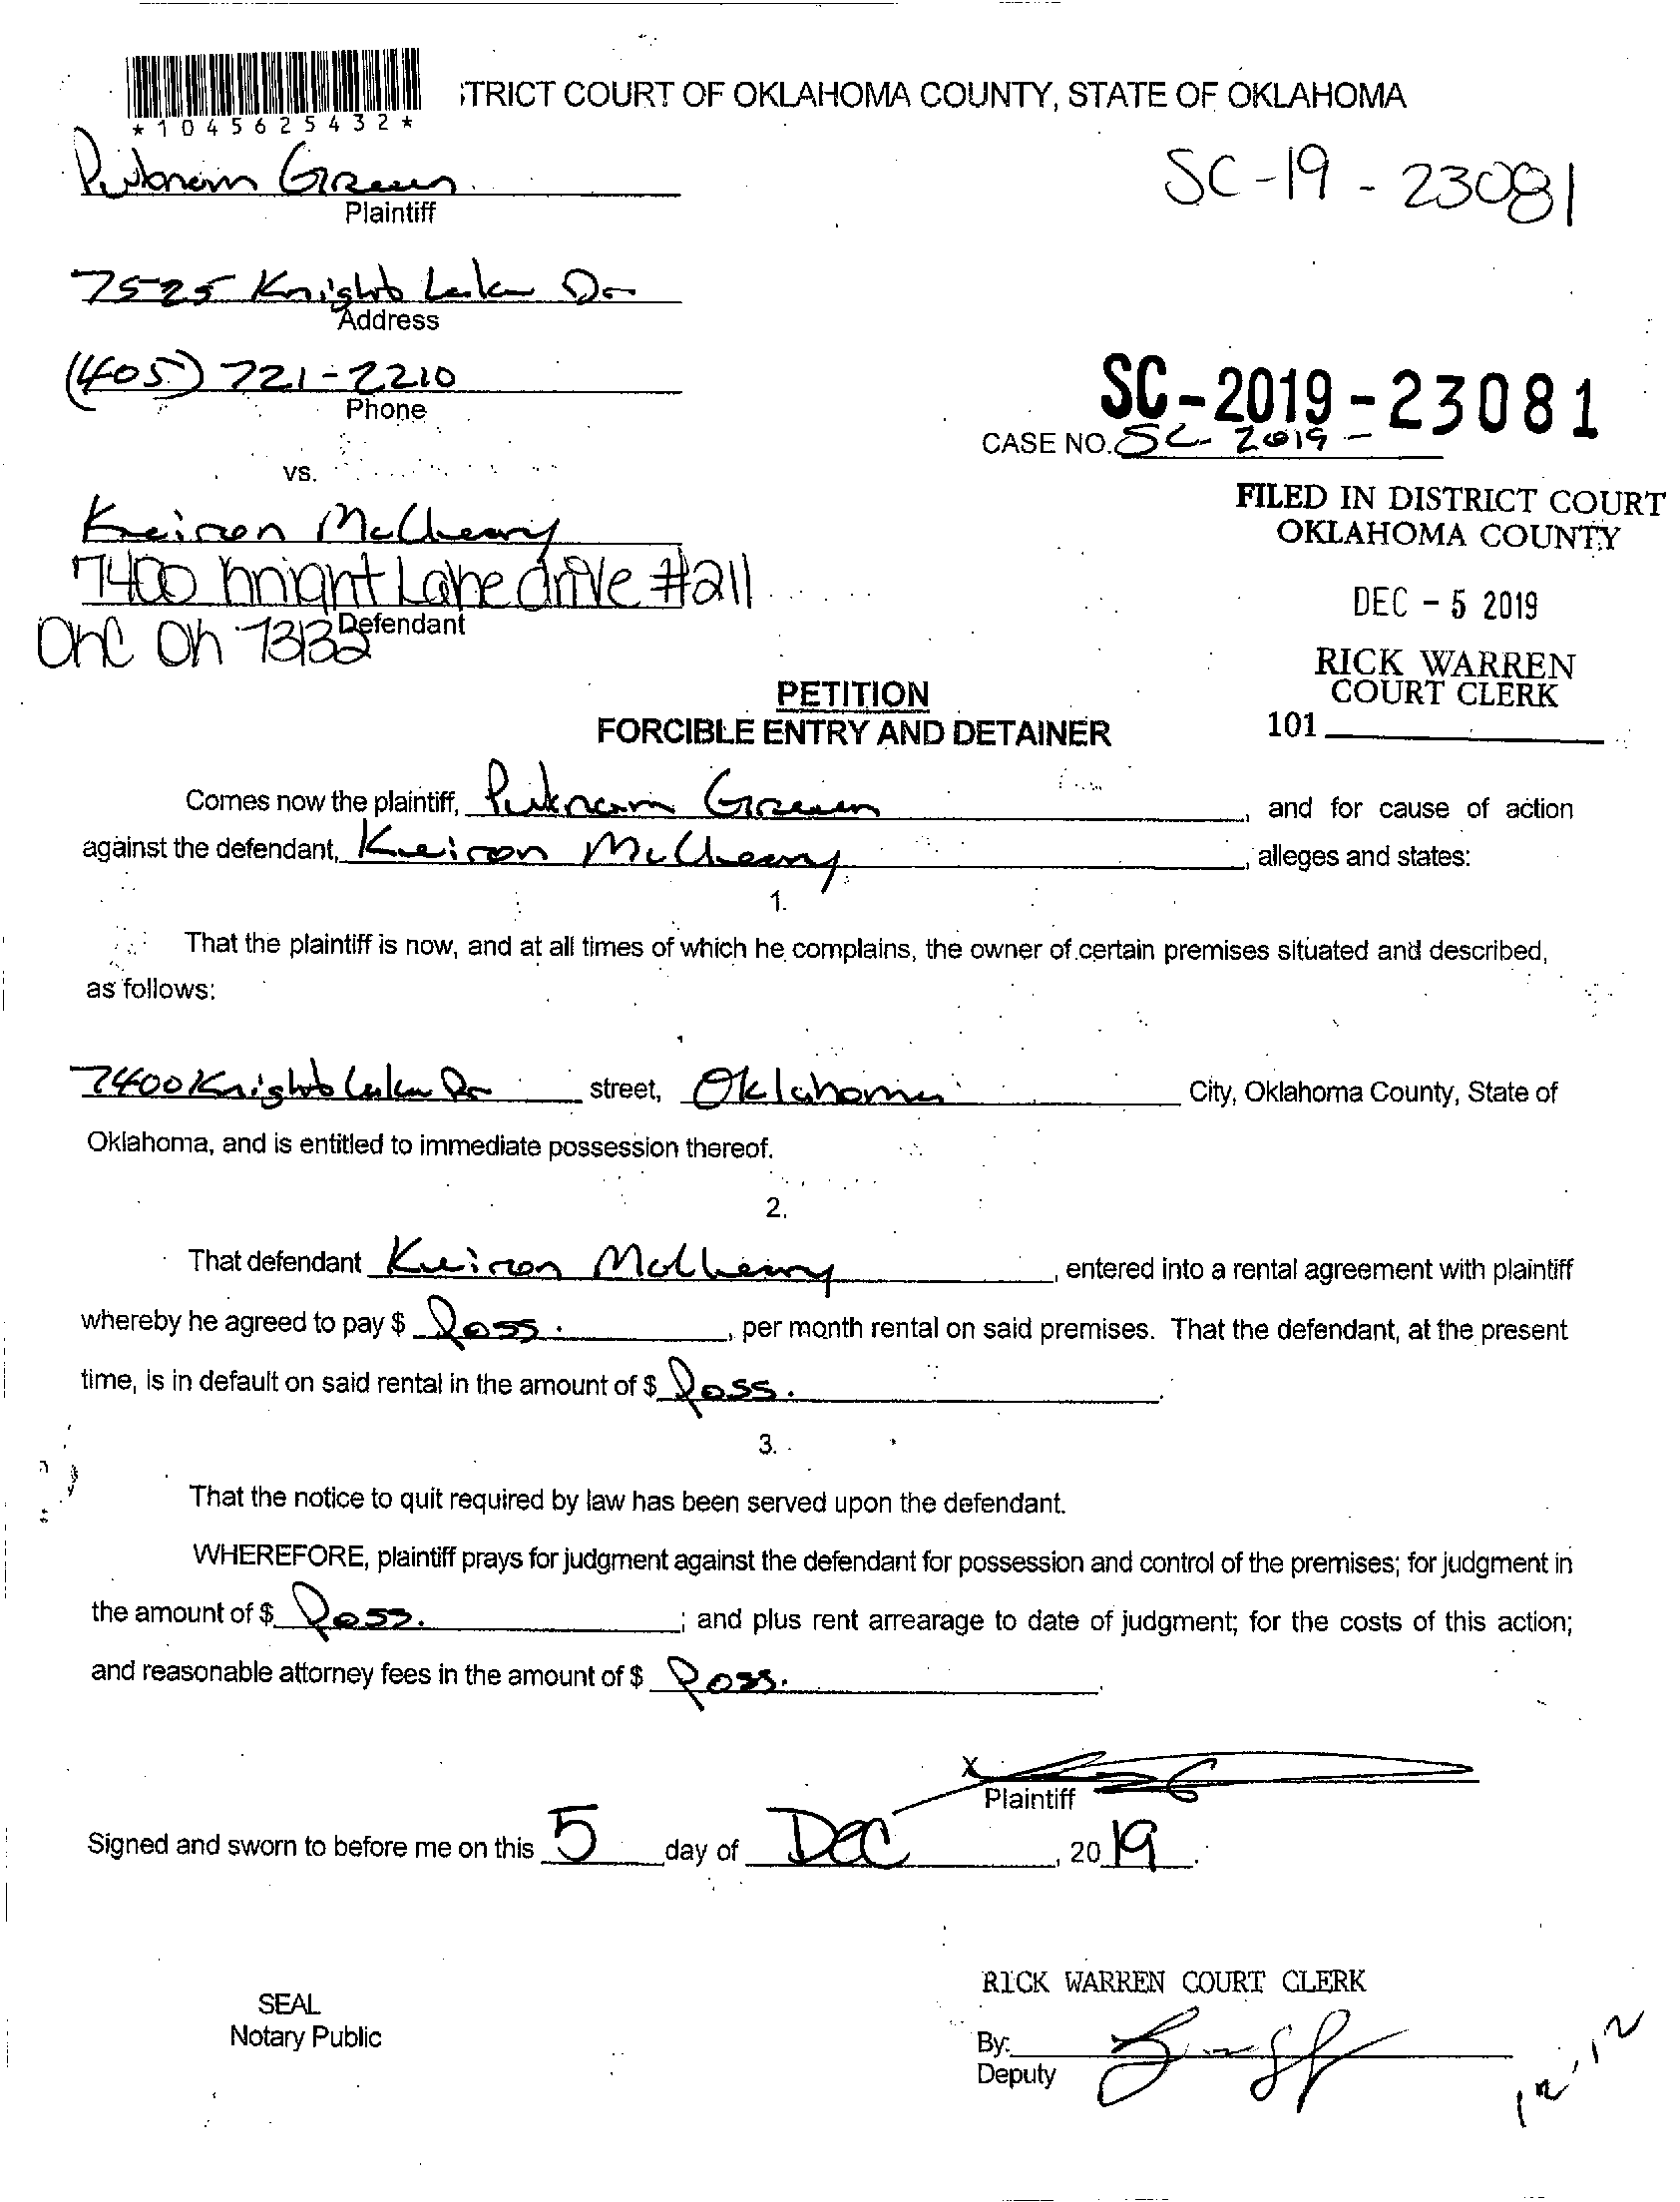 *1045625432*
TRICT COURT OF OKLAHOMA COUNTY, STATE OF OKLAHOMA
Putnam Green
Plaintiff
SC-19-23081
7525 Knight Lake Dr
Address
(405) 721-2210
Phone
SC-2019-23081
CASE NO. SC-2019-
vs.
FILED IN DISTRICT COURT
OKLAHOMA COUNTY
Keiron McCheary
7400 Knight Lake drive #211
Defendant
OKC OK 73132
DEC - 5 2019
RICK WARREN
COURT CLERK
101
PETITION
FORCIBLE ENTRY AND DETAINER
Comes now the plaintiff, Putnam Green, and for cause of action
against the defendant, Keiron McCheary, alleges and states:
1.
That the plaintiff is now, and at all times of which he complains, the owner of certain premises situated and described,
as follows:
7400 Knight Lake Dr street, Oklahoma City, Oklahoma County, State of
Oklahoma, and is entitled to immediate possession thereof.
2.
That defendant Keiron McCheary, entered into a rental agreement with plaintiff
whereby he agreed to pay $ Poss., per month rental on said premises. That the defendant, at the present
time, is in default on said rental in the amount of $ Poss.
3.
That the notice to quit required by law has been served upon the defendant.
WHEREFORE, plaintiff prays for judgment against the defendant for possession and control of the premises; for judgment in
the amount of $ Poss. ; and plus rent arrearage to date of judgment; for the costs of this action;
and reasonable attorney fees in the amount of $ Poss.
X
Plaintiff
Signed and sworn to before me on this 5 day of DEC, 2019.
RICK WARREN COURT CLERK
SEAL
Notary Public
By:
Deputy
12-12